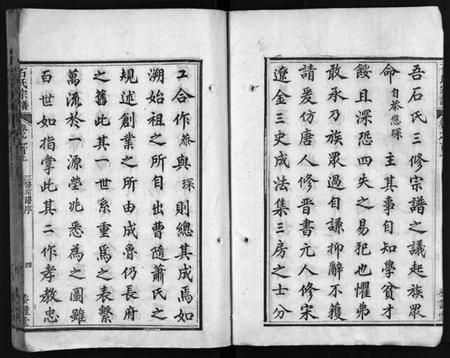 吾石氏三修宗譜之議起族眾
命自蓁恖琛主其事自知學貧才
餒且深恐四失之易犯也懼弗
敢承乃族眾過自謙抑辭不獲
請爰仿唐人修晋書元人修宋
遼金三史成法集三房之士分
工合作蓁與琛則總其成焉如
溯始祖之所自出曹隨蕭氏之
規述創業之所由成魯仍長府
之舊此其一世系重爲之表繫
萬流於一源瑩兆悉爲之圖雖
百世如指掌此其二作孝教忠
石氏宗譜
卷之首上
三修宗譜序
四